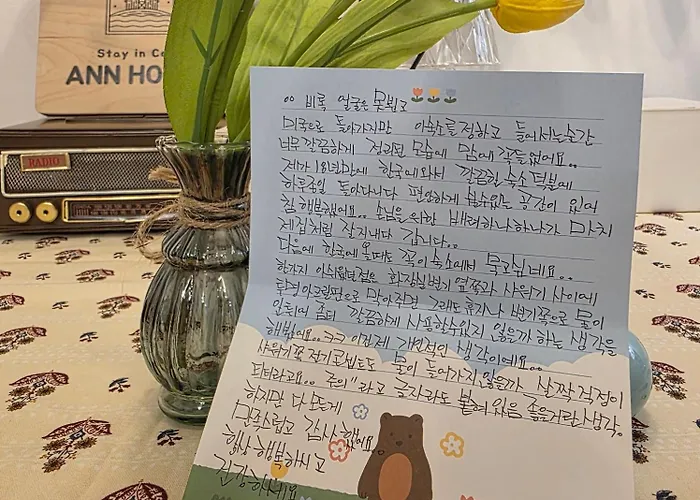 Stay in
ANN HO
RADIO
○○ 비록 얼굴은 못뵙고
미국으로 돌아가지만 이숙소를 정하고 들어서는순간
너무 깔끔하게 정리된 모습에 맘에 쏙들었어요..
제가 18년만에 한국에와서 깔끔한 숙소 덕분에
하루종일 돌아다니다 편안하게 쉴수있는 공간이 있어
참 행복했어요.. 손님을 위한 배려하나하나가 마치
제집처럼 잘지내다 갑니다..
다음에 한국에 올때도 꼭이숙소에서 묵고싶네요..
한가지 아쉬웠던점은 화장실변기 옆쪽과 샤워기 사이에
투명아크릴판으로 막아주면 그래도 휴지나 변기쪽으로 물이
안튀여 좀더 깔끔하게 사용할수있지 않을까 하는 생각을
했밨어요..ㅋㅋ 이건제 개인적인 생각이예요..
샤워기쪽 전기코센트도 물이 들어가지 않을까 살짝 걱정이
되더라고요.. 주의"라고 글자라도 붙혀 있음 좋을거란 생각.
하지만 다 또또게
만족스럽고 감사했어요.
항상 행복하시고
건강하세요